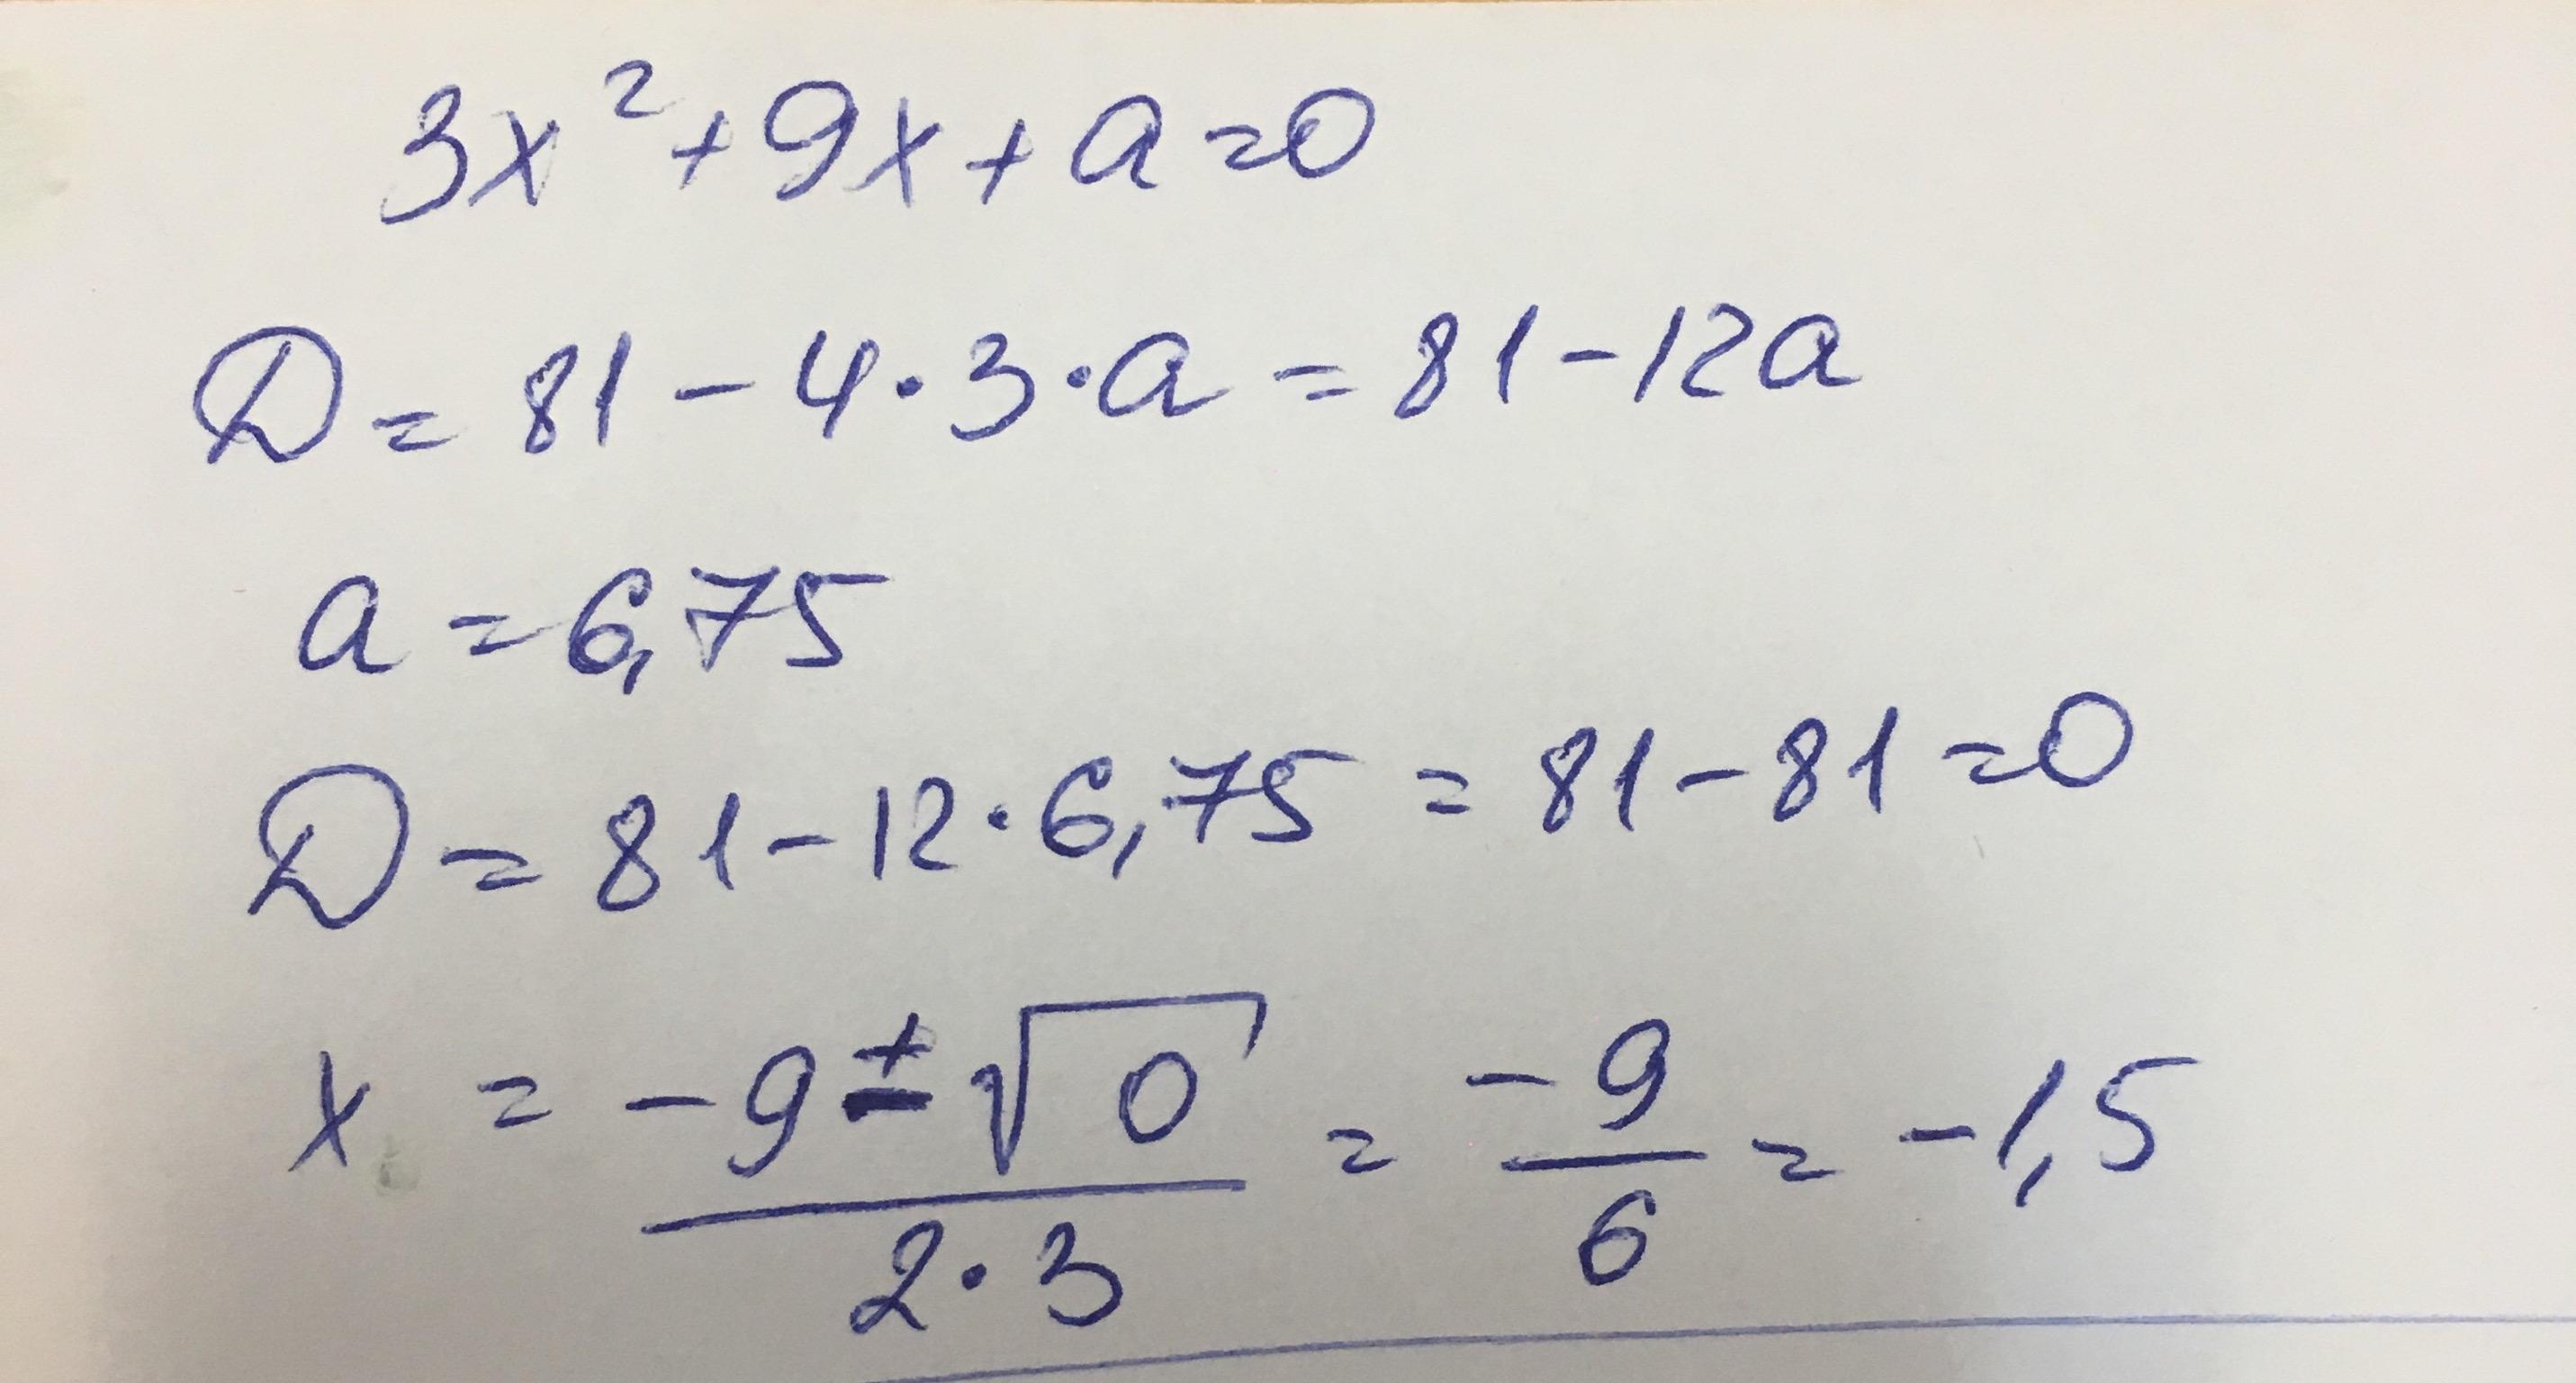 3x² + 9x + a = 0
D = 81 - 4·3·a = 81 - 12a
a = 6,75
D = 81 - 12·6,75 = 81 - 81 = 0
x = (-9 ± √0)/(2·3) = -9/6 = -1,5